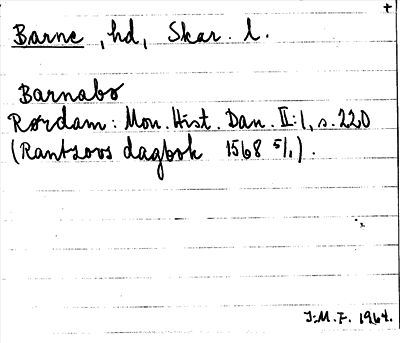 +
Barne, hd, Skar. l.
Barnabo
Rørdam: Mon. Hist. Dan. II:1, s. 220
(Rantzovs dagbok 1568 5/1).
J.M.F. 1964.